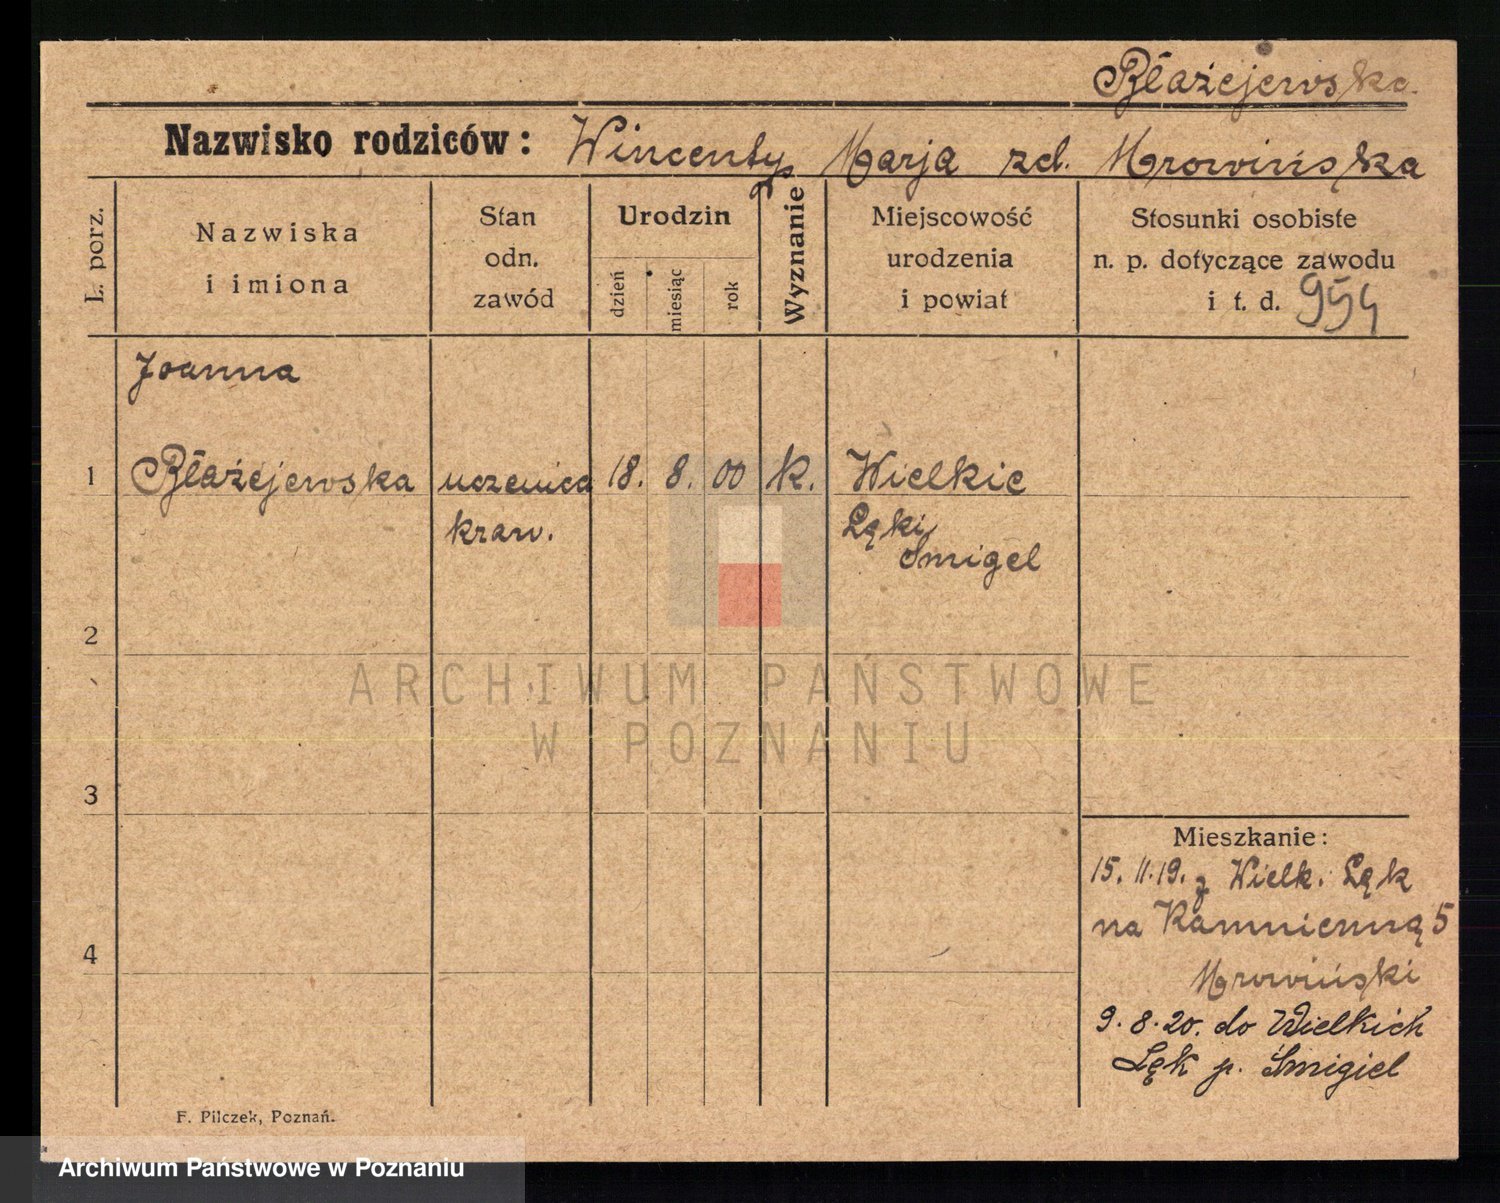 Błażejewska
Nazwisko rodziców: Wincenty Marja zd. Mrowińska
L. porz.
Nazwiska i imiona
Stan odn. zawód
Urodzin
dzień
miesiąc
rok
Wyznanie
Miejscowość urodzenia i powiat
Stosunki osobiste
n. p. dotyczące zawodu
i t. d. 954
Joanna
1 Błażejewska uczenica 18. 8. 00 k. Wielkie
kraw. Łęki
Śmigel
2
3
4
Mieszkanie:
15. 11. 19. z Wielk. Łęk
na Kamnienną 5
Mrowiński
9. 8. 20. do Wielkich
Łęk p. Śmigiel
F. Pilczek, Poznań.
ARCHIWUM PAŃSTWOWE
W POZNANIU
Archiwum Państwowe w Poznaniu